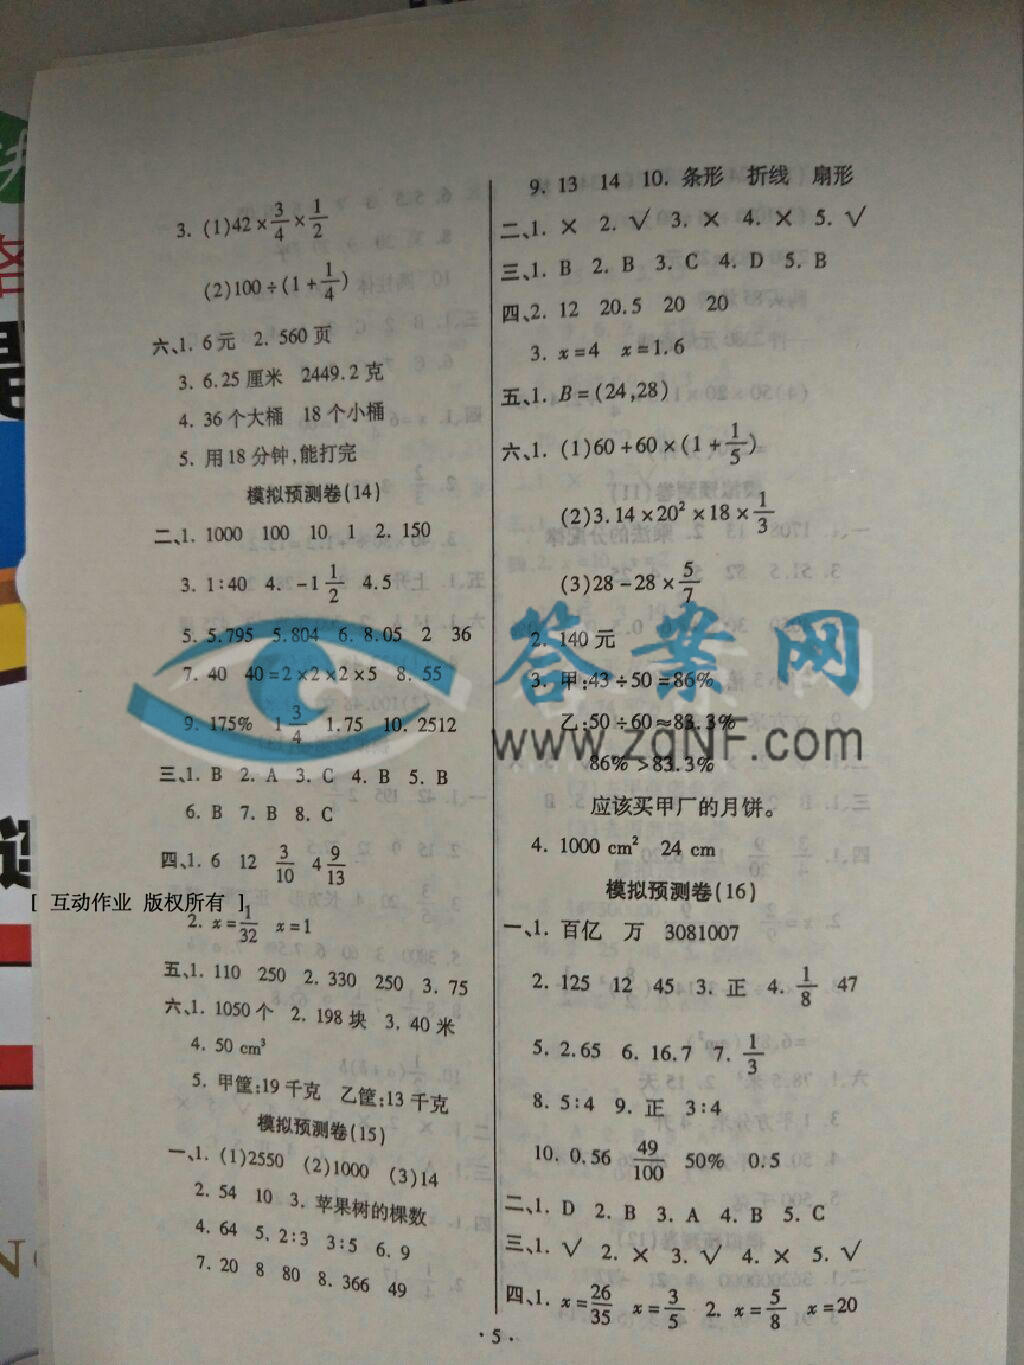 3. (1)42×3/4×1/2
(2)100÷(1+1/4)
六、1. 6元 2. 560页
3. 6.25厘米 2449.2克
4. 36个大桶 18个小桶
5. 用18分钟,能打完
模拟预测卷(14)
二、1. 1000 100 10 1 2. 150
3. 1∶40 4. -1 1/2 4.5
5. 5.795 5.804 6. 8.05 2 36
7. 40 40=2×2×2×5 8. 55
9. 175% 1 3/4 1.75 10. 2512
三、1. B 2. A 3. C 4. B 5. B
6. B 7. B 8. C
四、1. 6 12 3/10 4 9/13
[ 互动作业 版权所有 ]
2. x=1/32 x=1
五、1. 110 250 2. 330 250 3. 75
六、1. 1050个 2. 198块 3. 40米
4. 50 cm³
5. 甲筐:19千克 乙筐:13千克
模拟预测卷(15)
一、1. (1)2550 (2)1000 (3)14
2. 54 10 3. 苹果树的棵数
4. 64 5. 2∶3 3∶5 6. 9
7. 20 8 80 8. 366 49
9. 13 14 10. 条形 折线 扇形
二、1. × 2. √ 3. × 4. × 5. √
三、1. B 2. B 3. C 4. D 5. B
四、2. 12 20.5 20 20
3. x=4 x=1.6
五、1. B=(24,28)
六、1. (1)60+60×(1+1/5)
(2)3.14×20²×18×1/3
(3)28-28×5/7
2. 140元
3. 甲:43÷50=86%
乙:50÷60≈83.3%
86%>83.3%
应该买甲厂的月饼。
4. 1000 cm² 24 cm
模拟预测卷(16)
一、1. 百亿 万 3081007
2. 125 12 45 3. 正 4. 1/8 47
5. 2.65 6. 16.7 7. 1/3
8. 5∶4 9. 正 3∶4
10. 0.56 49/100 50% 0.5
二、1. D 2. B 3. A 4. B 5. C
三、1. √ 2. × 3. √ 4. × 5. √
四、1. x=26/35 x=3/5 2. x=5/8 x=20
· 5 ·
答案网
www.zqNF.com